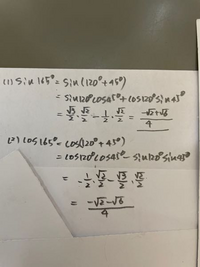 (1) sin165° = sin(120°+45°)
= sin120°cos45°+cos120°sin45°
= √3/2・√2/2 - 1/2・√2/2 = -√2+√6/4
(2) cos165° = cos(120°+45°)
= cos120°cos45° - sin120°sin45°
= -1/2・√2/2 - √3/2・√2/2
= -√2-√6/4